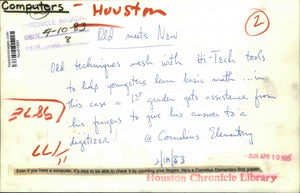 Computers - Houston
CHRONICLE MAGAZINE
ISSUE 4-10-83
PAGE 8
2
Old meets New
Old techniques mesh with Hi-Tech tools
to help youngsters learn basic math ... in
this case a 1st grader gets assistance from
his fingers to give his answer to a
digetizer.
@ Cornelius Elementary
2/18/83
SUN APR 10 1983
Even if you have a computer, it's nice to be able to check it by counting your fingers. He's a Cornelius Elementary first grader.
Houston Chronicle Library